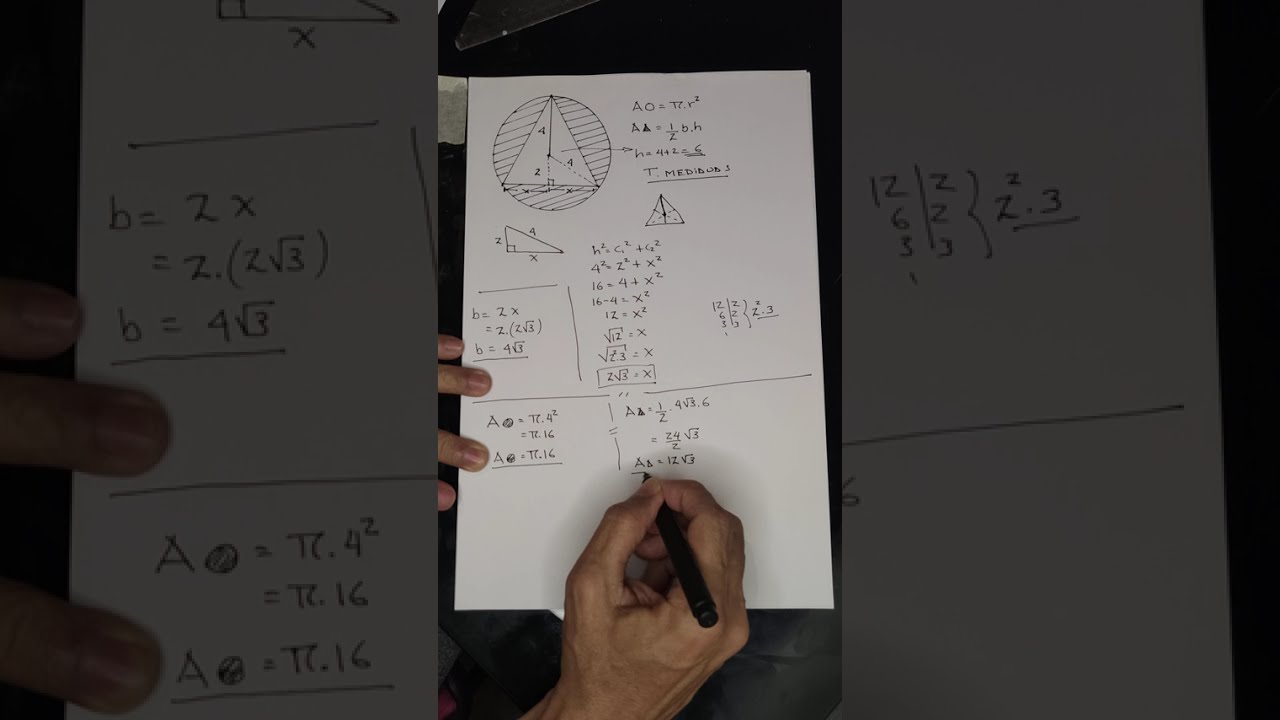 x
b = 2x
= 2.(2√3)
b = 4√3
A = π.4²
= π.16
A = π.16
4
4
2
x x
AO = π.r²
A△ = 1/2 b.h
h = 4+2 = 6
2
4
x
h² = c₁² + c₂²
4² = 2² + x²
16 = 4 + x²
16-4 = x²
12 = x²
√12 = x
√2².3 = x
2√3 = x
b = 2x
= 2.(2√3)
b = 4√3
12 | 2
6 | 2
3 | 3
1
2².3
A = π.4²
= π.16
A = π.16
A△ = 1/2 . 4√3.6
= 24/2 √3
A△ = 12√3
12 | 2
6 | 2
3 | 3
1
2².3
6